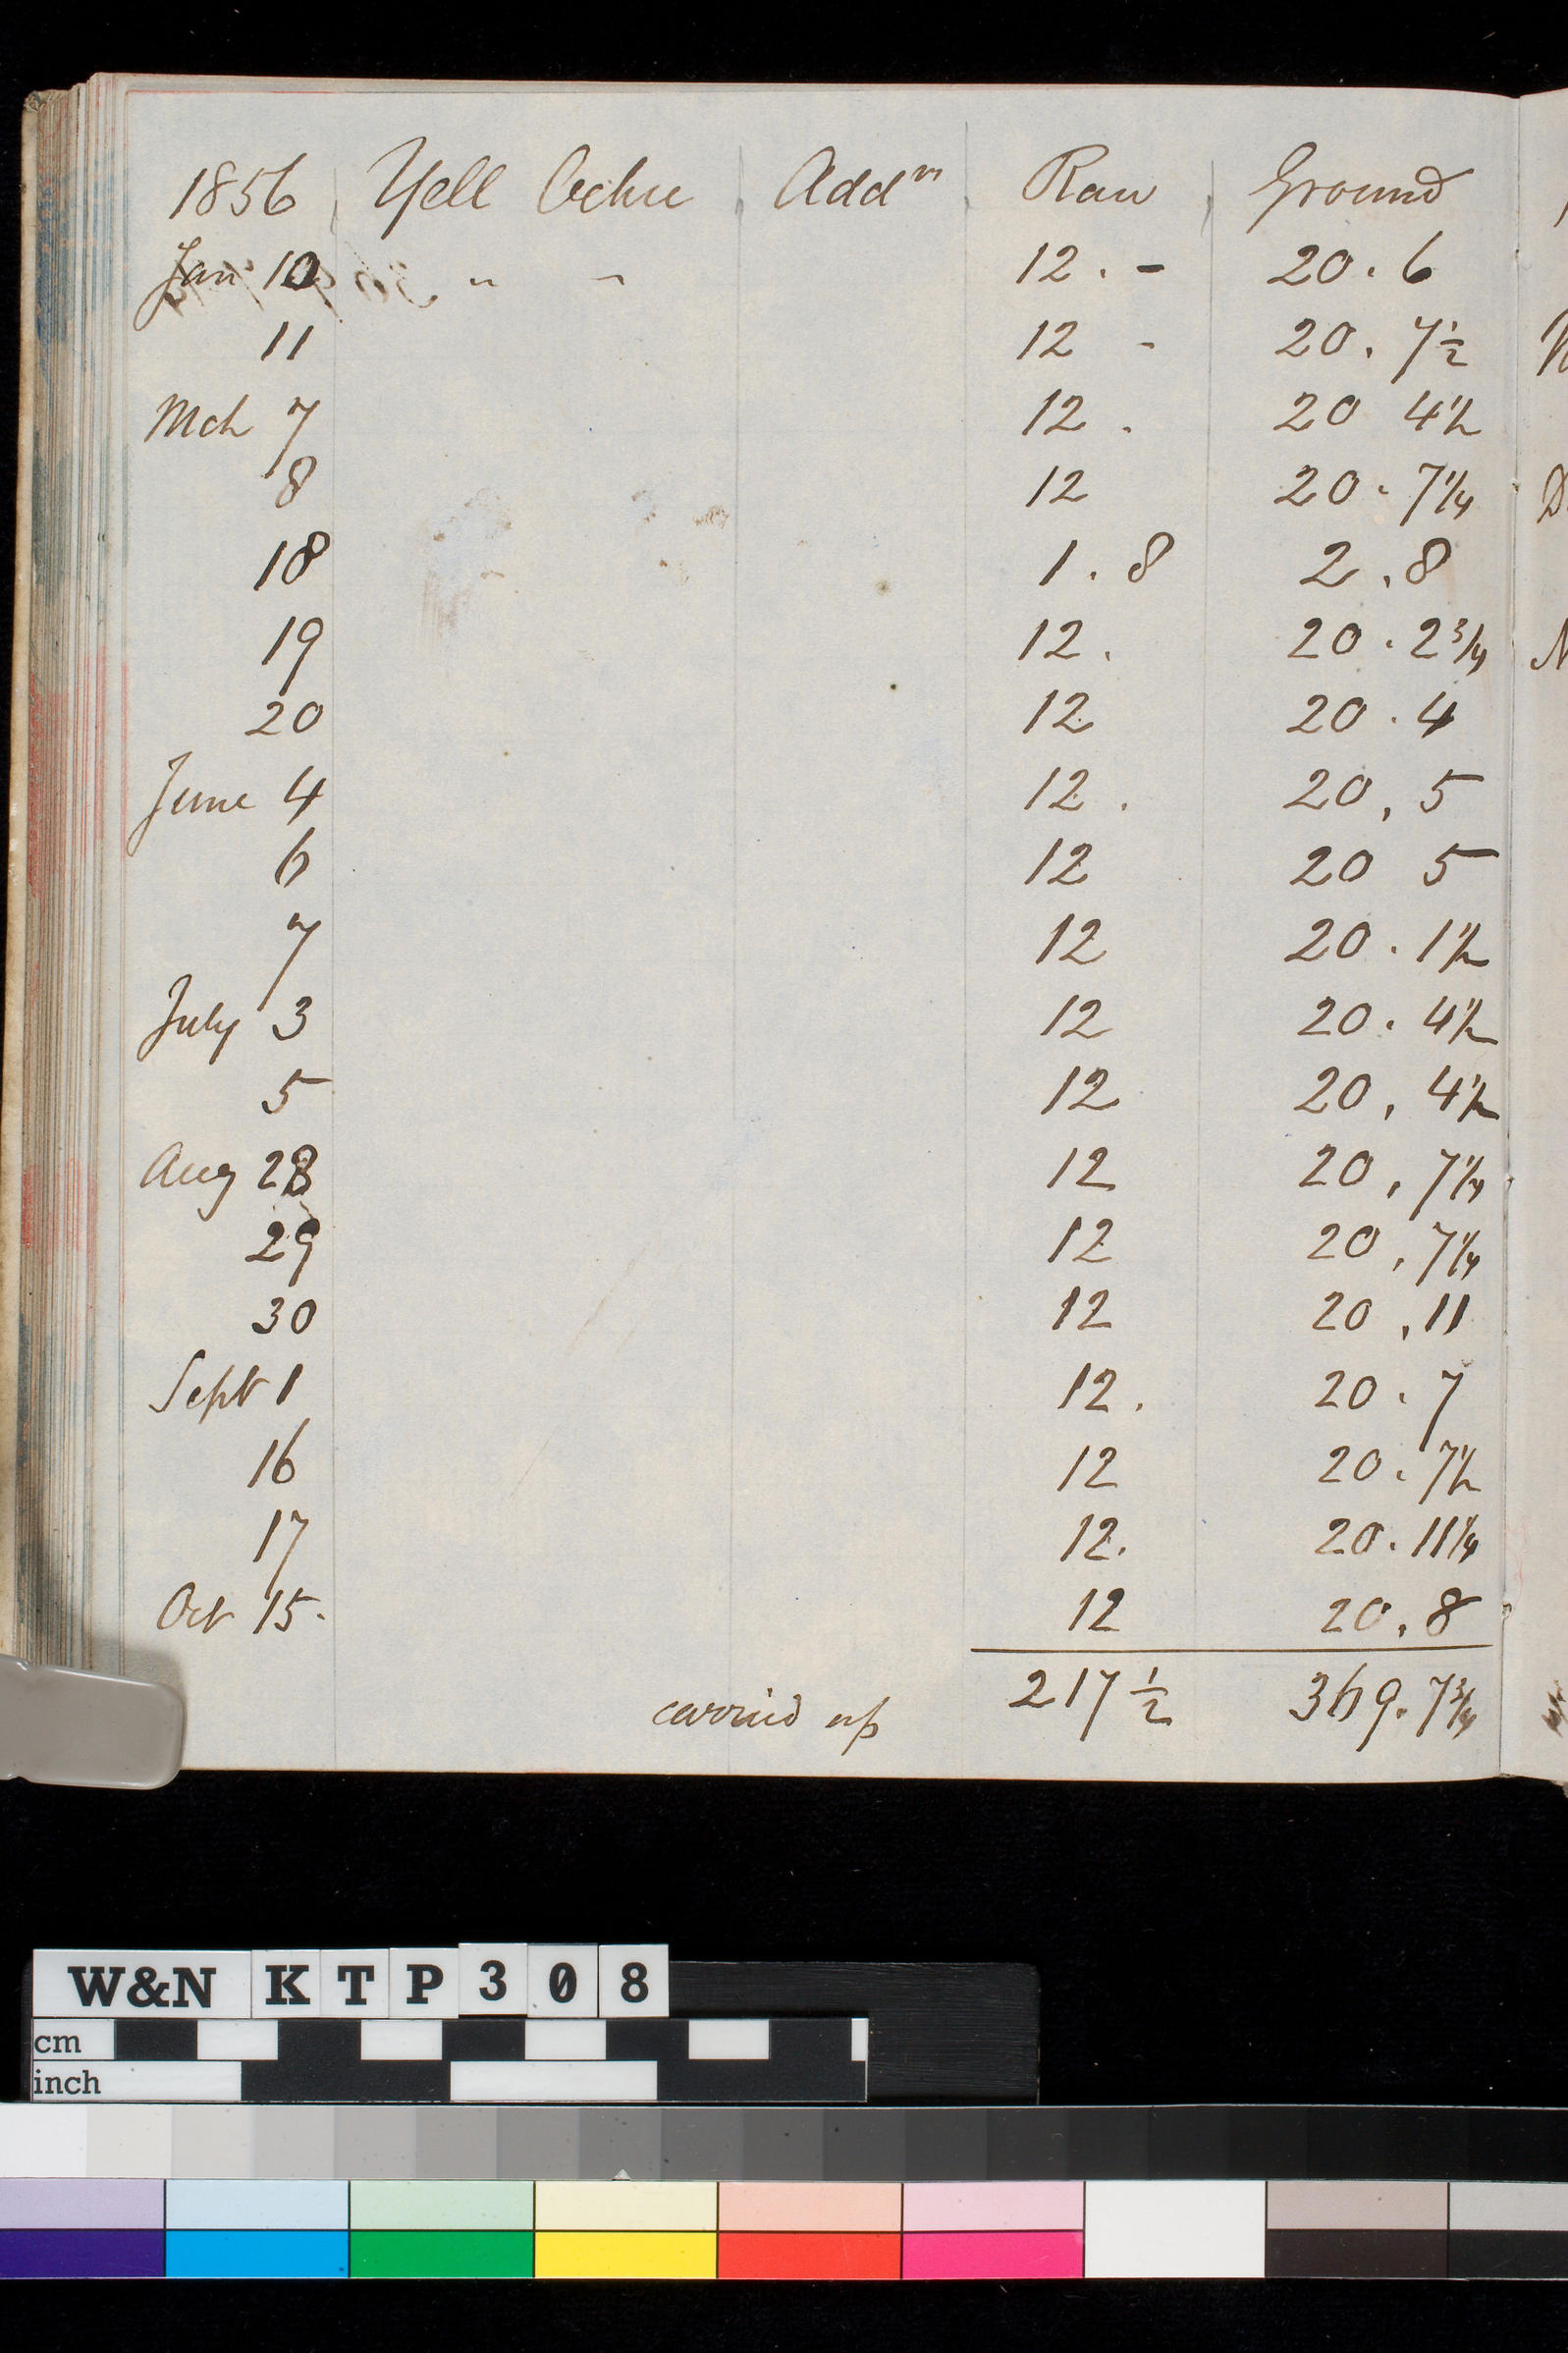 1856 Yell Ochre Add^n Raw Ground
Jan 10 " " 12 . - 20 . 6
11 12 - 20 . 7 1/2
Mch 7 12 . 20 4 1/2
8 12 20 . 7 1/4
18 1 . 8 2 . 8
19 12 . 20 . 2 3/4
20 12 20 . 4
June 4 12 . 20 , 5
6 12 20 5
7 12 20 . 1 1/2
July 3 12 20 . 4 1/2
5 12 20 , 4 1/2
Aug 28 12 20 , 7 1/4
29 12 20 , 7 1/4
30 12 20 , 11
Sept 1 12 . 20 . 7
16 12 20 . 7 1/2
17 12 . 20 . 11 1/4
Oct 15 . 12 20 . 8
carried up 217 1/2 369 . 7 3/4
W&N KTP308
cm
inch